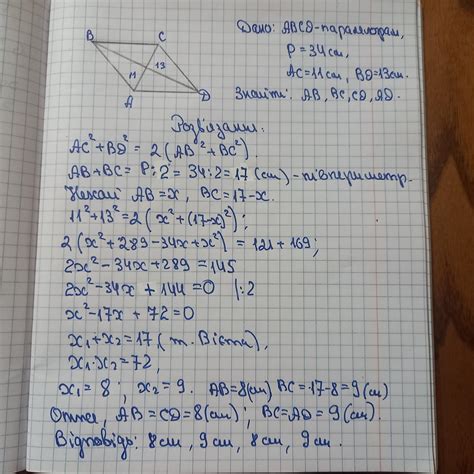 Дано: ABCD-паралелограм,
P = 34 см,
AC = 11 см, BD = 13 см.
Знайти: AB, BC, CD, AD.
B C
11 13
A D
Розв'язання:
AC² + BD² = 2(AB² + BC²).
AB + BC = P:2 = 34:2 = 17 (см) - півпериметр.
Нехай AB = x, BC = 17-x.
11² + 13² = 2(x² + (17-x)²);
2(x² + 289 - 34x + x²) = 121 + 169;
2x² - 34x + 289 = 145
2x² - 34x + 144 = 0 |:2
x² - 17x + 72 = 0
x₁ + x₂ = 17 (т. Вієта),
x₁·x₂ = 72,
x₁ = 8; x₂ = 9. AB = 8 (см) BC = 17-8 = 9 (см)
Отже, AB = CD = 8 (см); BC = AD = 9 (см).
Відповідь: 8 см, 9 см, 8 см, 9 см.